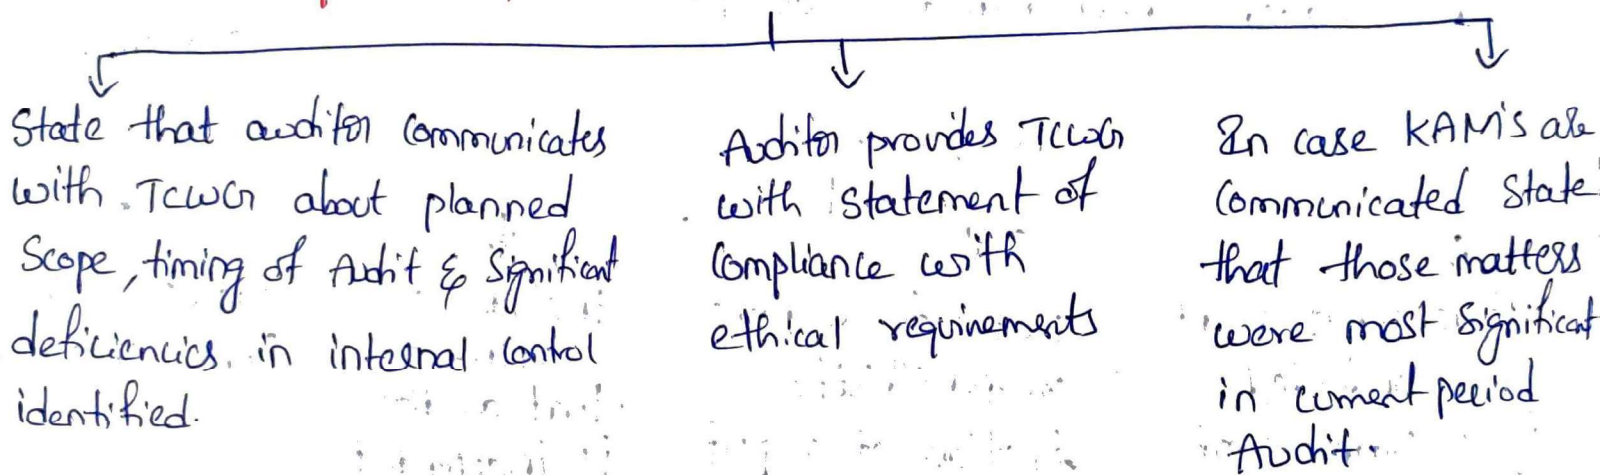 State that auditor communicates
with TCWG about planned
Scope, timing of Audit & Significant
deficiencies in internal control
identified.
Auditor provides TCWG
with Statement of
Compliance with
ethical requirements
In case KAM's are
Communicated State
that those matters
were most Significant
in current period
Audit.